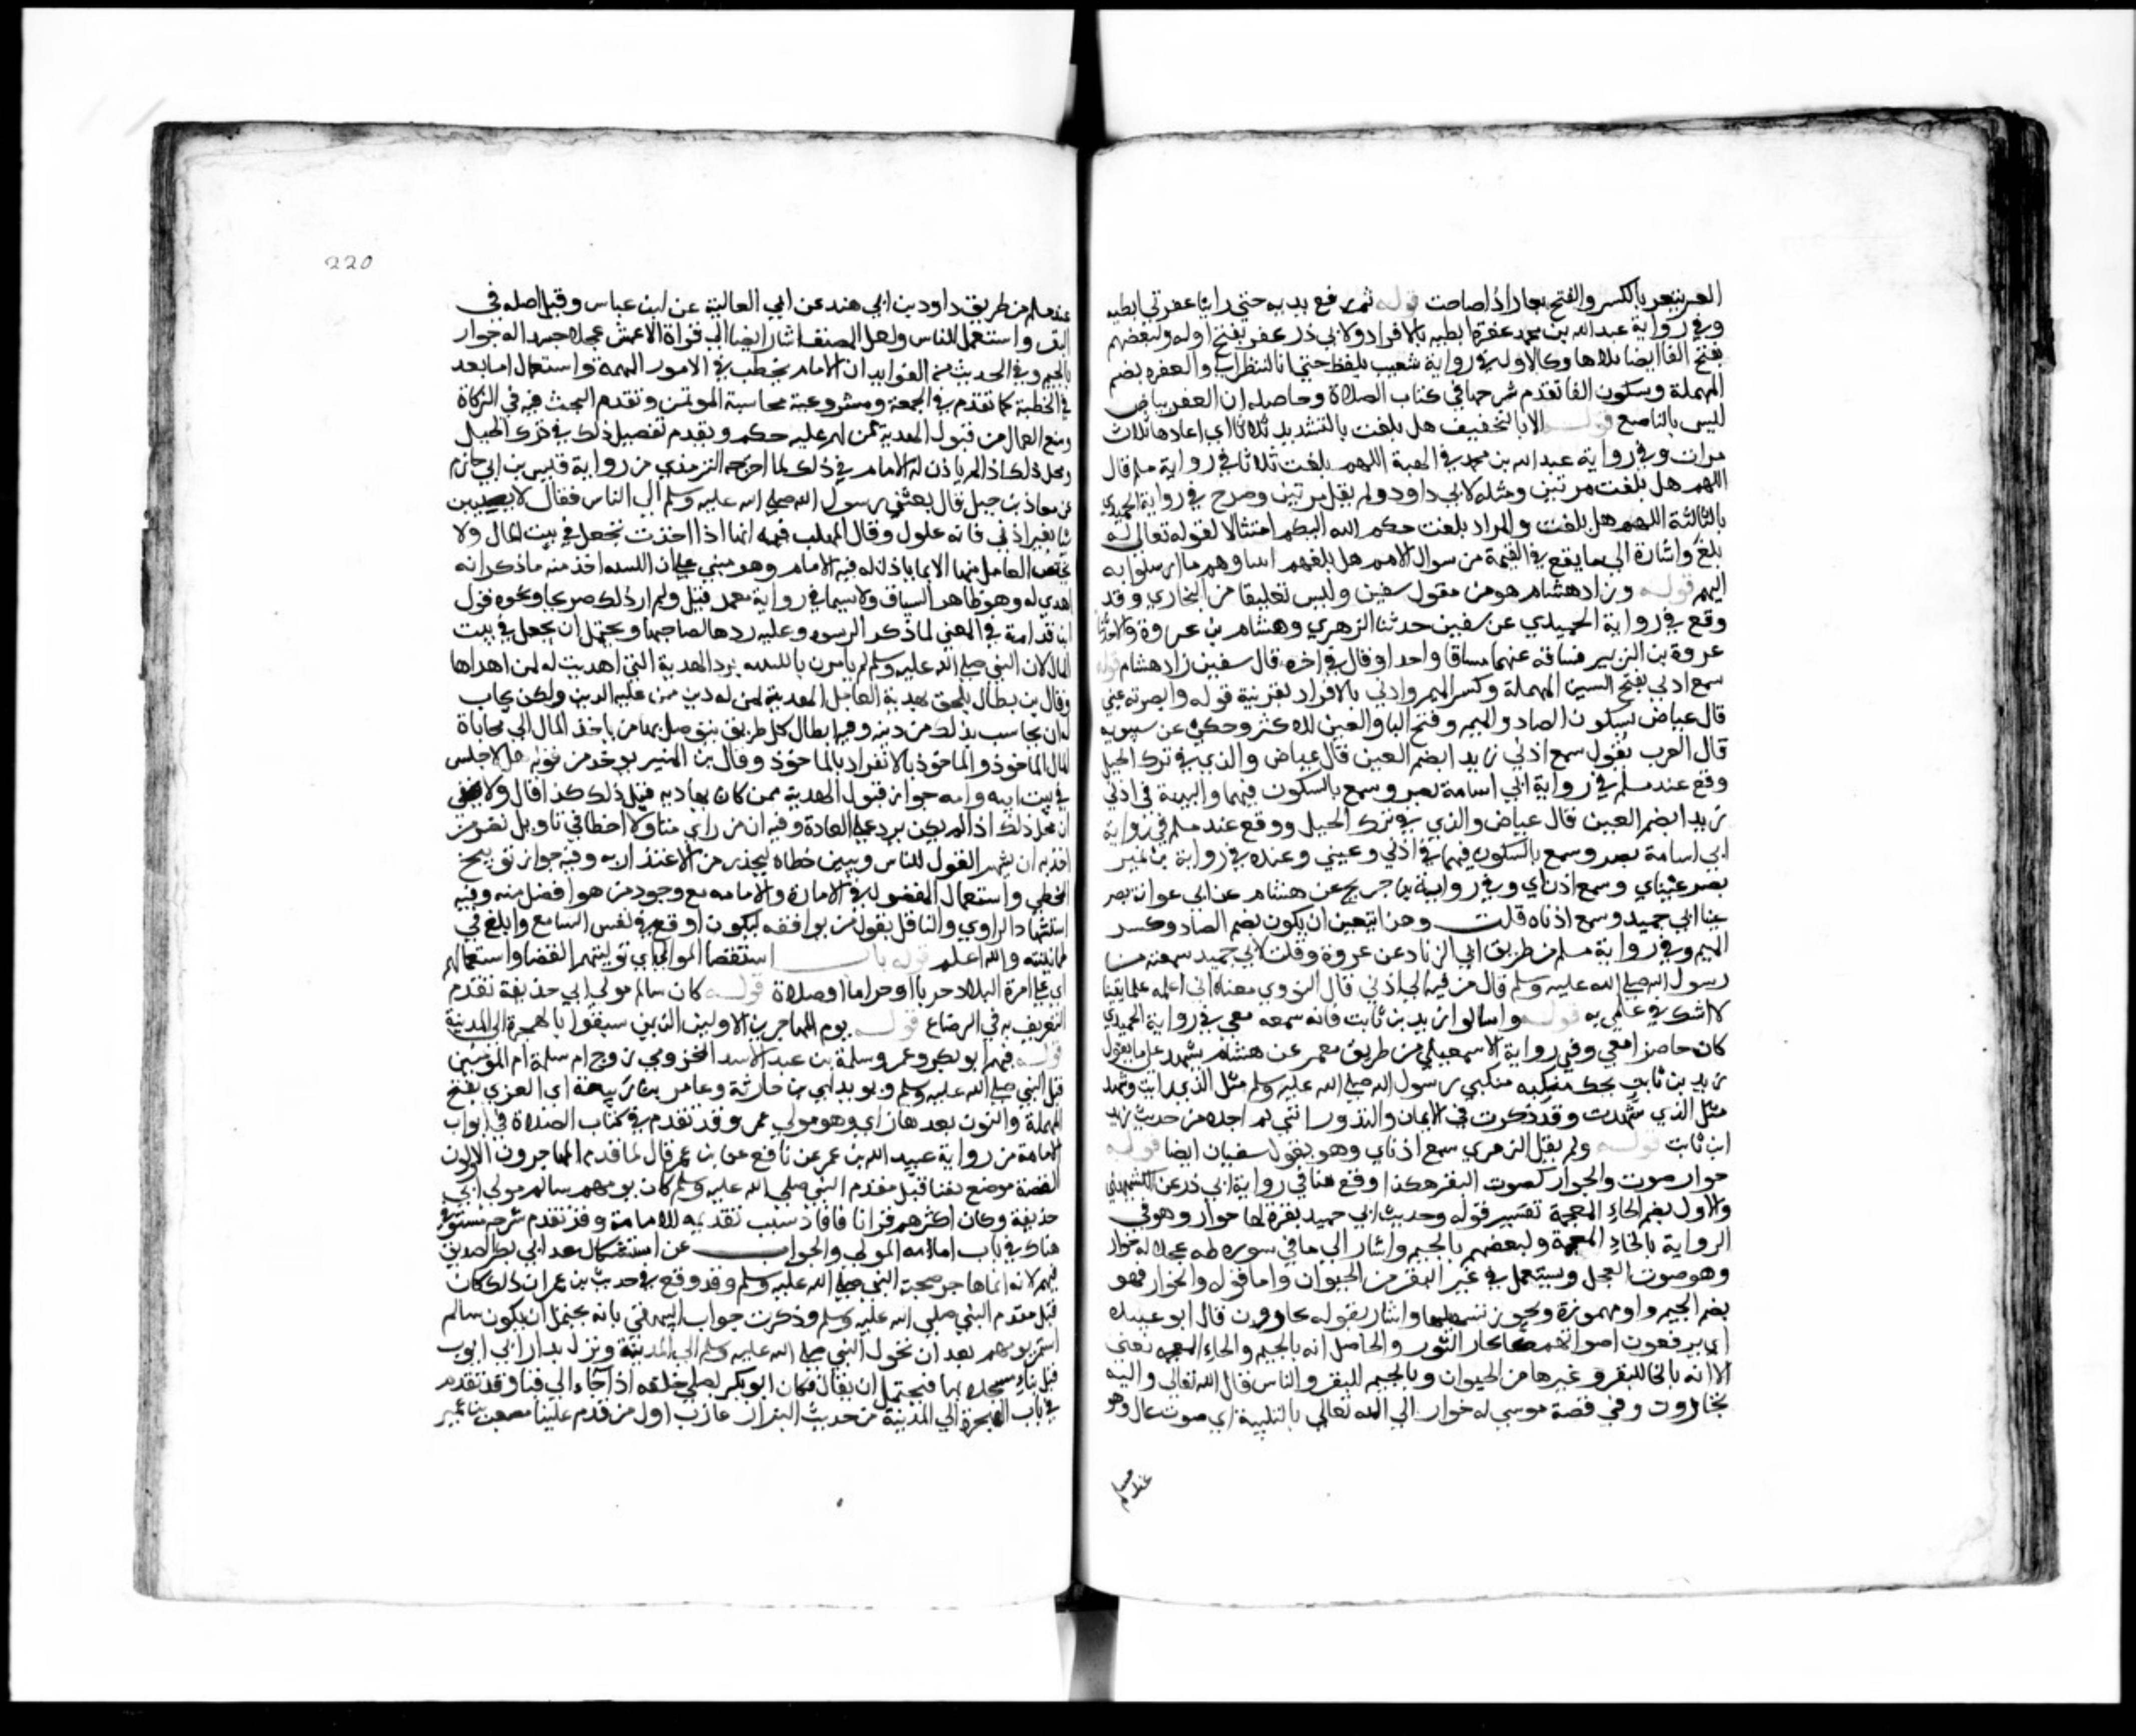 العنز تيعر بالكسر والفتح يعارا اذا صاحت قوله ثم رفع يديه حتى راينا عفرتي ابطيه
وفي رواية عبد الله بن محمد عفرة ابطيه بالافراد ولابي ذر عفر بفتح اوله ولبعضهم
بفتح الفا ايضا بلا ها وكالاول في رواية شعيب بلفظ حتى انا لننظر الى والعفره بضم
المهملة وسكون الفا تقدم شرحها في كتاب الصلاة وحاصله ان العفر بياض
ليس بالناصع قوله الا بالتخفيف هل بلغت بالتشديد ثلاثا اي اعادها ثلاث
مرات وفي رواية عبد الله بن محمد في الهبة اللهم بلغت ثلاثا في رواية مسلم قال
اللهم هل بلغت مرتين ومثله لابي داود ولم يقل مرتين وصرح في رواية الحميدي
بالثالثة اللهم هل بلغت والمراد بلغت حكم الله اليكم امتثالا لقوله تعالى له
بلغ واشارة الى ما يقع في القيمة من سوال الامم هل بلغهم انبياوهم ما ارسلوا به
اليهم قوله وزاد هشام هو من مقول سفين وليس تعليقا من البخاري وقد
وقع في رواية الحميدي عن سفين حدثنا الزهري وهشام بن عروة قالا حدثنا
عروة بن الزبير فساقه عنهما مساقا واحدا وقال في اخره قال سفين زاد هشام قوله
سمع اذني بفتح السين المهملة وكسر الميم واذني بالافراد بقرينة قوله وابصرته عيني
قال عياض بسكون الصاد والميم وفتح اليا والعين للاكثر وحكي عن سيبويه
قال العرب تقول سمع اذني زيدا بضم العين قال عياض والذي في ترك الحيل
وقع عند مسلم في رواية ابي اسامة بصر وسمع بالسكون فيهما والبينة في اذني
زيدا بضم العين قال عياض والذي في ترك الحيل ووقع عند مسلم في رواية
ابي اسامة بصر وسمع بالسكون فيهما في اذني وعيني وعنده في رواية بن نمير
بصر عيناي وسمع اذناي وفي رواية بن جريج عن هشام عن ابي عوانه بصر
عينا ابي حميد وسمع اذناه قلت وهذا يتعين ان يكون بضم الصاد وكسر
الميم وفي رواية مسلم من طريق ابي الزناد عن عروة وقلت لابي حميد سمعته من
رسول الله صلى الله عليه وسلم قال من فيه الى اذني قال النووي معناه اني اعلمه علما يقينا
لا اشك في علمي به قوله واسالوا زيد بن ثابت فانه سمعه معي في رواية الحميدي
كان حاضرا معي وفي رواية الاسمعيلي من طريق معمر عن هشام يشهد على ما يقول
زيد بن ثابت يحك منكبه منكبي رسول الله صلى الله عليه وسلم مثل الذي رايت وشهد
مثل الذي شهدت وقد ذكرت في الايمان والنذور انني لم اجده من حديث زيد
ابن ثابت قوله ولم يقل الزهري سمع اذناي وهو يقول سفيان ايضا قوله
خوار صوت والجوار كصوت البقر هكذا وقع هنا في رواية ابي ذر عن الكشميهني
والاول بضم الخاء المعجمة تفسير قوله وحديث ابي حميد بقرة لها خوار وهو في
الرواية بالخاء المعجمة ولبعضهم بالجيم واشار الى ما في سوره طه عجلا له خوار
وهو صوت العجل ويستعمل في غير البقر من الحيوان واما قوله والجوار فهو
بضم الجيم واو مهموزة ويجوز تسهيلها واشار بقوله يجارون قال ابو عبيده
اي يرفعون اصواتهم كما يجار الثور والحاصل انه بالجيم والخاء المعجمه بمعنى
الا انه بالخا للبقر وغيرها من الحيوان وبالجيم للبقر والناس قال الله تعالى واليه
تجارون وفي قصة موسي له خوار الى الله تعالى بالتلبية اي صوت عال وهو
عند مسلم
220
عند مسلم من طريق داود بن ابي هند عن ابي العالية عن ابن عباس وقيل اصله في
البقر واستعمل للناس ولعل المصنف اشار ايضا الى قراة الاعمش عجلا جسدا له جوار
بالجيم وفي الحديث من الفوايد ان الامام يخطب في الامور المهمة واستعمال اما بعد
في الخطبة كما تقدم في الجمعة ومشروعية محاسبة الموتمن وتقدم البحث فيه في الزكاة
ومنع العمال من قبول الهدية ممن لهم عليه حكم وتقدم تفصيل ذلك في ترك الحيل
ومحل ذلك اذا لم ياذن له الامام في ذلك لما اخرجه الترمذي من رواية قيس بن ابي حازم
عن معاذ بن جبل قال بعثني رسول الله صلى الله عليه وسلم الى الناس فقال لا تصيبن
شيا بغير اذني فانه غلول وقال المهلب فيه انها اذا اخذت تجعل في بيت المال ولا
يختص العامل منها الا بما ياذن له فيه الامام وهو مبني على ان اللتبيه اخذ منه ما ذكر انه
اهدي له وهو ظاهر السياق ولا سيما في رواية معمر قبل ولم ار ذلك صريحا ونحوه قول
ابن قدامة في المغني لما ذكر الرشوه وعليه ردها لصاحبها ويحتمل ان يجعل في بيت
المال لان النبي صلى الله عليه وسلم لم يامر بن اللتبيه برد الهدية التي اهديت له لمن اهداها
وقال بن بطال يلحق بهدية العامل الهدية لمن له دين ممن عليه الدين ولكن يجاب
له ان يحاسب بذلك من دينه وفيه ابطال كل طريق يتوصل بها من ياخذ المال الى محاباة
المال الماخوذ والماخوذ بالانفراد بالماخوذ وقال بن المنير يوخذ من قوله هل لا جلس
في بيت ابيه وامه جواز قبول الهدية ممن كان يهاديه قبل ذلك كذا قال ولا يخفى
ان محل ذلك اذا لم يكن يزد على العادة وفيه ان من راي متاولا اخطا في تاويل يضر من
اخذ به ان يشهر القول للناس ويبين خطاه ليحذر من الاغترار به وفيه جواز توبيخ
المخطي واستعمال المفضول في الامارة والامامه مع وجود من هو افضل منه وفيه
استشهاد الراوي والناقل بقول من يوافقه ليكون اوقع في نفس السامع وابلغ في
طمانينته والله اعلم قوله باب استقضا الموالي اي توليتهم القضا واستعمالهم
اي على امرة البلاد حربا او خراجا او صلاة قوله كان سالم مولى ابي حذيفة تقدم
التعريف به في الرضاع قوله يوم المهاجرين الاولين الذين سبقوا بالهجرة الى المدينة
قوله فيهم ابو بكر وعمر وسلمة بن عبد الاسد المخزومي زوج ام سلمة ام المومنين
قبل النبي صلى الله عليه وسلم وبو يد اي بن حارثة وعامر بن ربيعة اي العنزي بفتح
المهملة والنون بعدها زاي وهو مولى عمر وقد تقدم في كتاب الصلاة في ابواب
الامامة من رواية عبيد الله بن عمر عن نافع عن بن عمر قال لما قدم المهاجرون الاولون
العصبة موضع بقبا قبل مقدم النبي صلى الله عليه وسلم كان يومهم سالم مولى ابي
حذيفة وكان اكثرهم قرانا فافاد سبب تقديمه للامامة وقد تقدم شرحه مستوفى
هناك في باب امامة المولى والجواب عن استشكال عد ابي بكر الصديق
فيهم لانه انما هاجر صحبة النبي صلى الله عليه وسلم وقد وقع في حديث بن عمر ان ذلك كان
قبل مقدم النبي صلى الله عليه وسلم وذكرت جواب البيهقي بانه يحتمل ان يكون سالم
استمر يومهم بعد ان تحول النبي صلى الله عليه وسلم الى المدينة ونزل بدار ابي ايوب
قبل بناء مسجده بها فيحتمل ان يقال فكان ابو بكر يصلي خلفه اذا جاء الى قبا وقد تقدم
في باب الهجرة الى المدينة من حديث البراء بن عازب اول من قدم علينا مصعب بن عمير